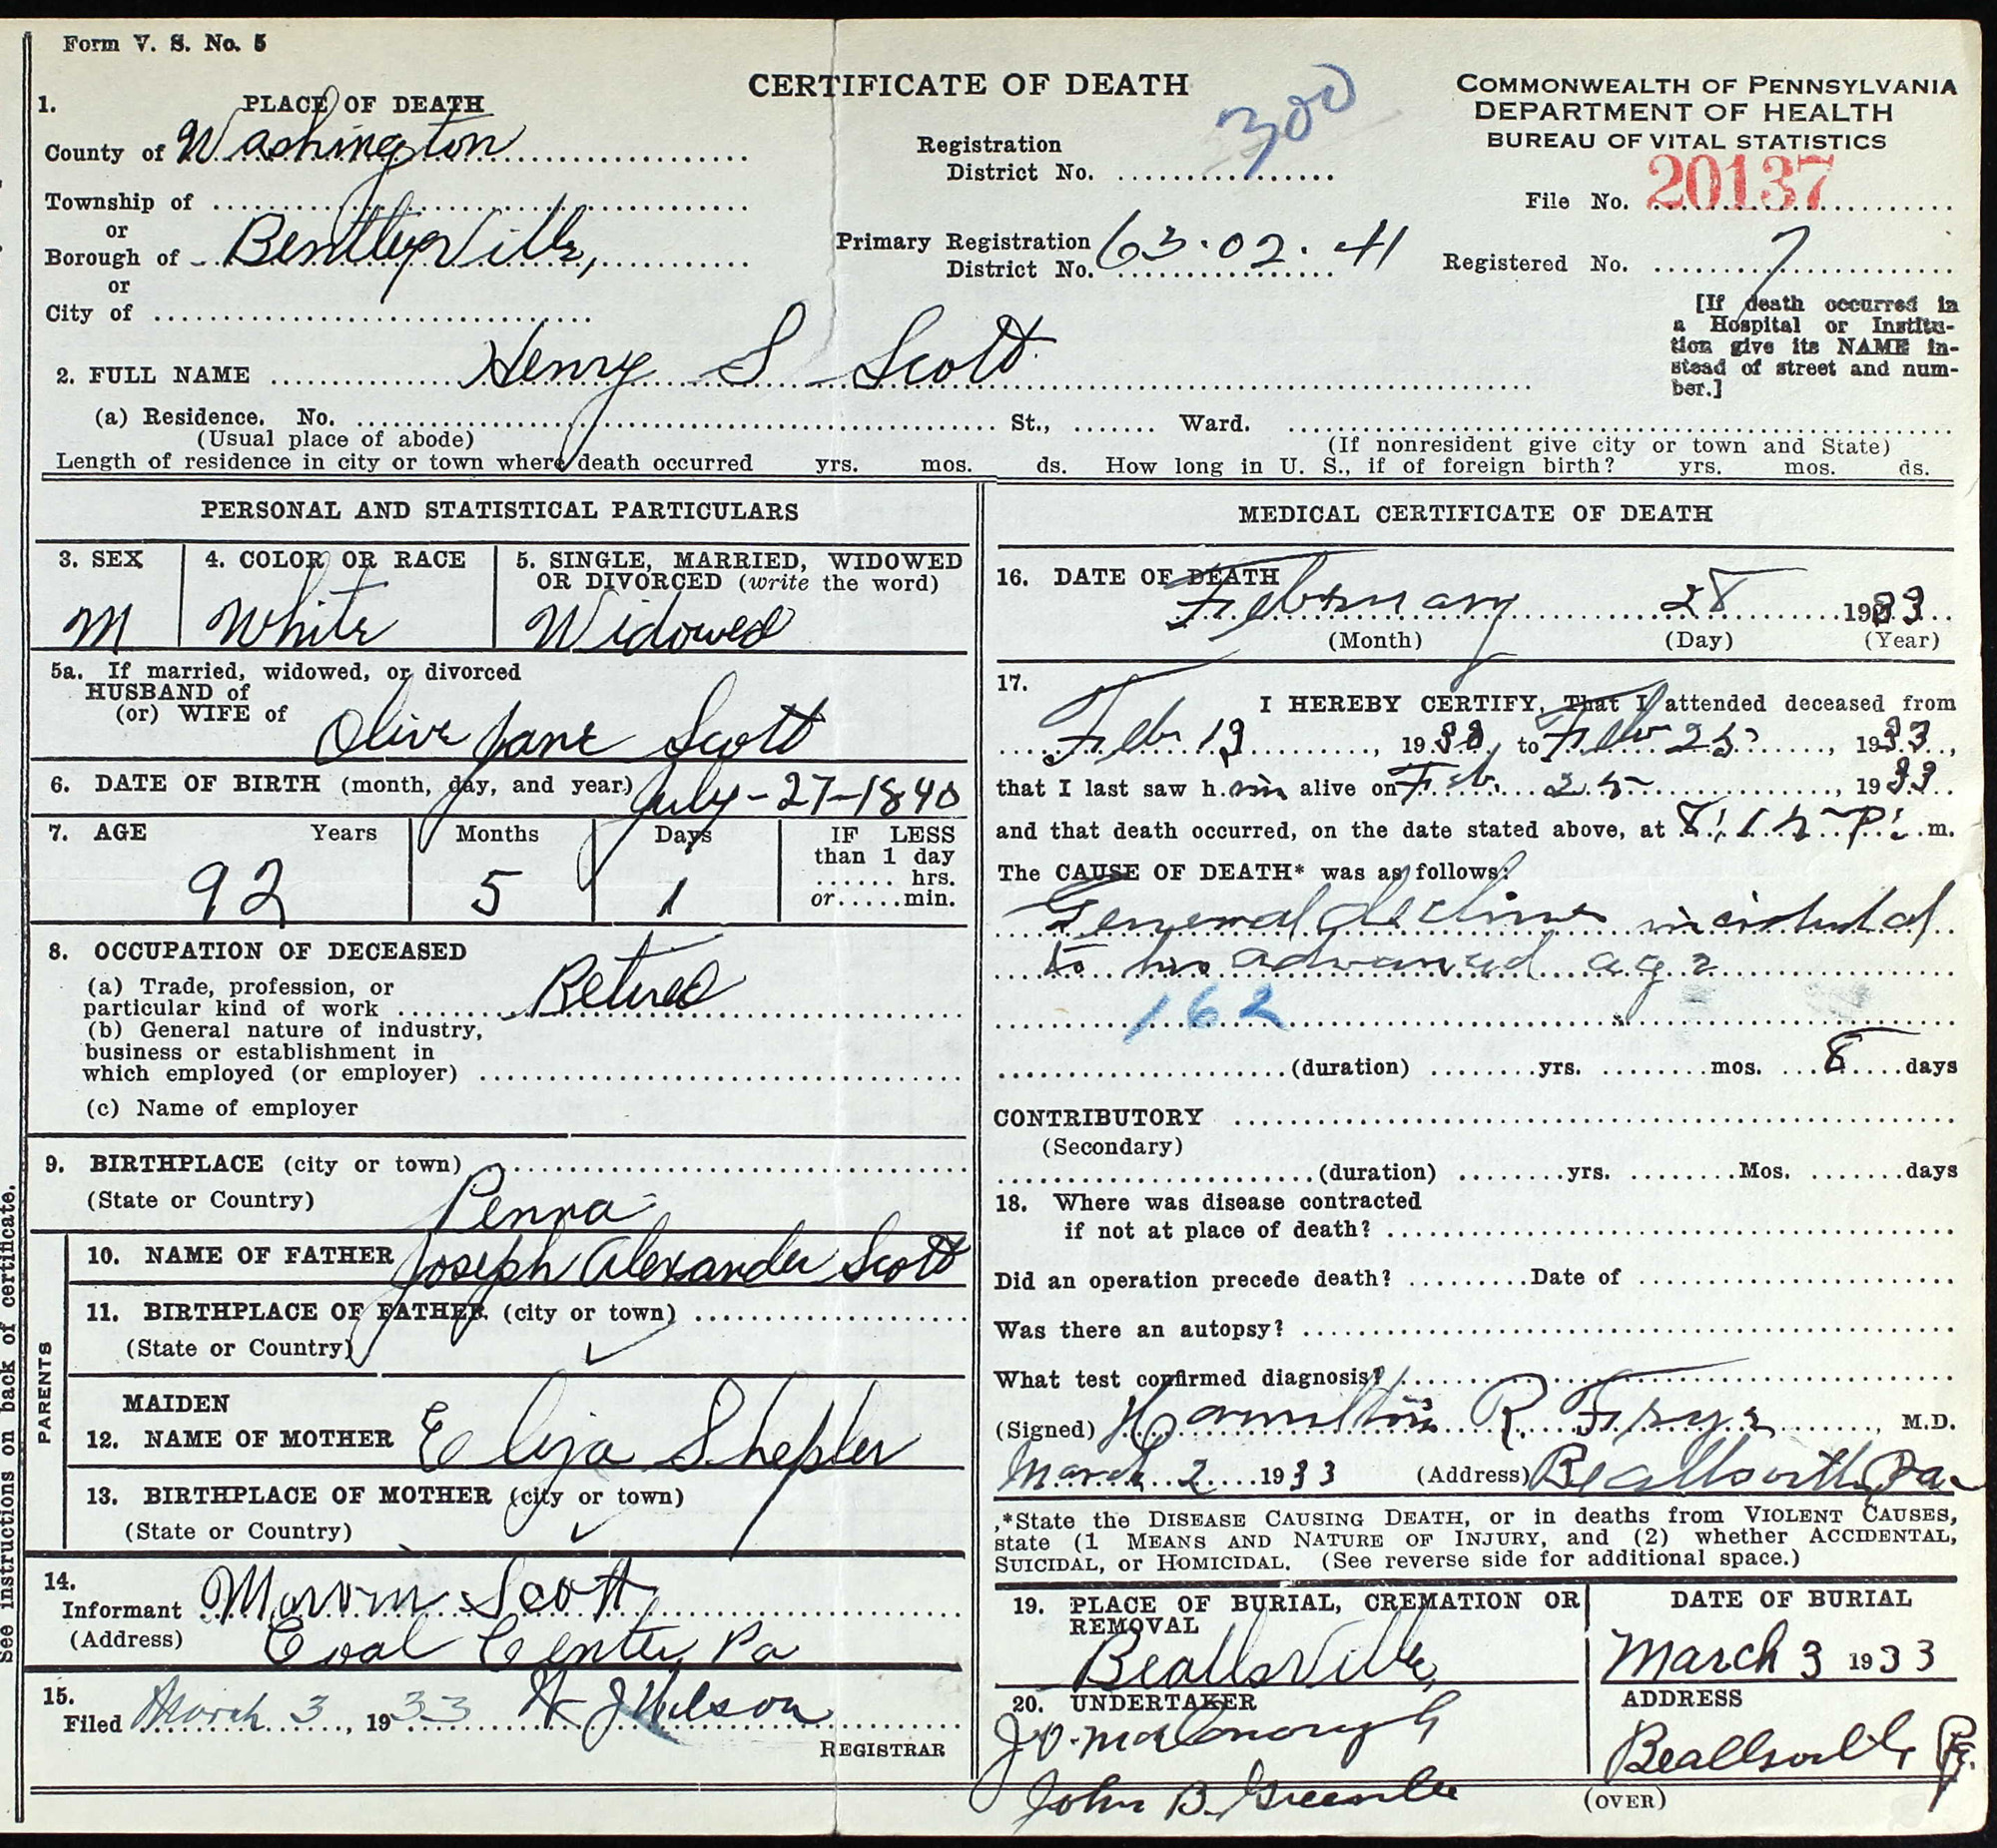 Form V. S. No. 5
CERTIFICATE OF DEATH
COMMONWEALTH OF PENNSYLVANIA
DEPARTMENT OF HEALTH
BUREAU OF VITAL STATISTICS
1. PLACE OF DEATH
County of Washington
Township of
or
Borough of Bentleyville,
or
City of
Registration
District No. 300
Primary Registration
District No. 63.02.41
File No. 20137
Registered No. 7
[If death occurred in
a Hospital or Institu-
tion give its NAME in-
stead of street and num-
ber.]
2. FULL NAME Henry S Scott
(a) Residence. No. St., Ward.
(Usual place of abode) (If nonresident give city or town and State)
Length of residence in city or town where death occurred yrs. mos. ds. How long in U. S., if of foreign birth? yrs. mos. ds.
PERSONAL AND STATISTICAL PARTICULARS
3. SEX
M
4. COLOR OR RACE
White
5. SINGLE, MARRIED, WIDOWED
OR DIVORCED (write the word)
Widowed
5a. If married, widowed, or divorced
HUSBAND of
(or) WIFE of Olive Jane Scott
6. DATE OF BIRTH (month, day, and year) July-27-1840
7. AGE Years Months Days
92 5 1
IF LESS
than 1 day
hrs.
or min.
8. OCCUPATION OF DECEASED
(a) Trade, profession, or
particular kind of work Retired
(b) General nature of industry,
business or establishment in
which employed (or employer)
(c) Name of employer
9. BIRTHPLACE (city or town)
(State or Country) Penna
PARENTS
10. NAME OF FATHER Joseph Alexander Scott
11. BIRTHPLACE OF FATHER (city or town)
(State or Country)
MAIDEN
12. NAME OF MOTHER Eliza Shepler
13. BIRTHPLACE OF MOTHER (city or town)
(State or Country)
14.
Informant Scott
(Address) Coal Center, Pa
15.
Filed March 3, 1933 Wilson
REGISTRAR
See instructions on back of certificate.
MEDICAL CERTIFICATE OF DEATH
16. DATE OF DEATH
February 28 1933
(Month) (Day) (Year)
17.
I HEREBY CERTIFY, That I attended deceased from
Feb 19, 1933, to Feb 25, 1933,
that I last saw him alive on Feb. 25, 1933
and that death occurred, on the date stated above, at 8:15 P. m.
The CAUSE OF DEATH* was as follows:
General decline incidental
to his advanced age
162
(duration) yrs. mos. 8 days
CONTRIBUTORY
(Secondary)
(duration) yrs. Mos. days
18. Where was disease contracted
if not at place of death?
Did an operation precede death? Date of
Was there an autopsy?
What test confirmed diagnosis?
(Signed) Hamilton R. Frye, M.D.
March 2 1933 (Address) Beallsville, Pa
*State the DISEASE CAUSING DEATH, or in deaths from VIOLENT CAUSES,
state (1 MEANS AND NATURE OF INJURY, and (2) whether ACCIDENTAL,
SUICIDAL, or HOMICIDAL. (See reverse side for additional space.)
19. PLACE OF BURIAL, CREMATION OR
REMOVAL
Beallsville,
DATE OF BURIAL
March 3 1933
20. UNDERTAKER
John B. Greenlee
ADDRESS
Beallsville Pa.
(OVER)